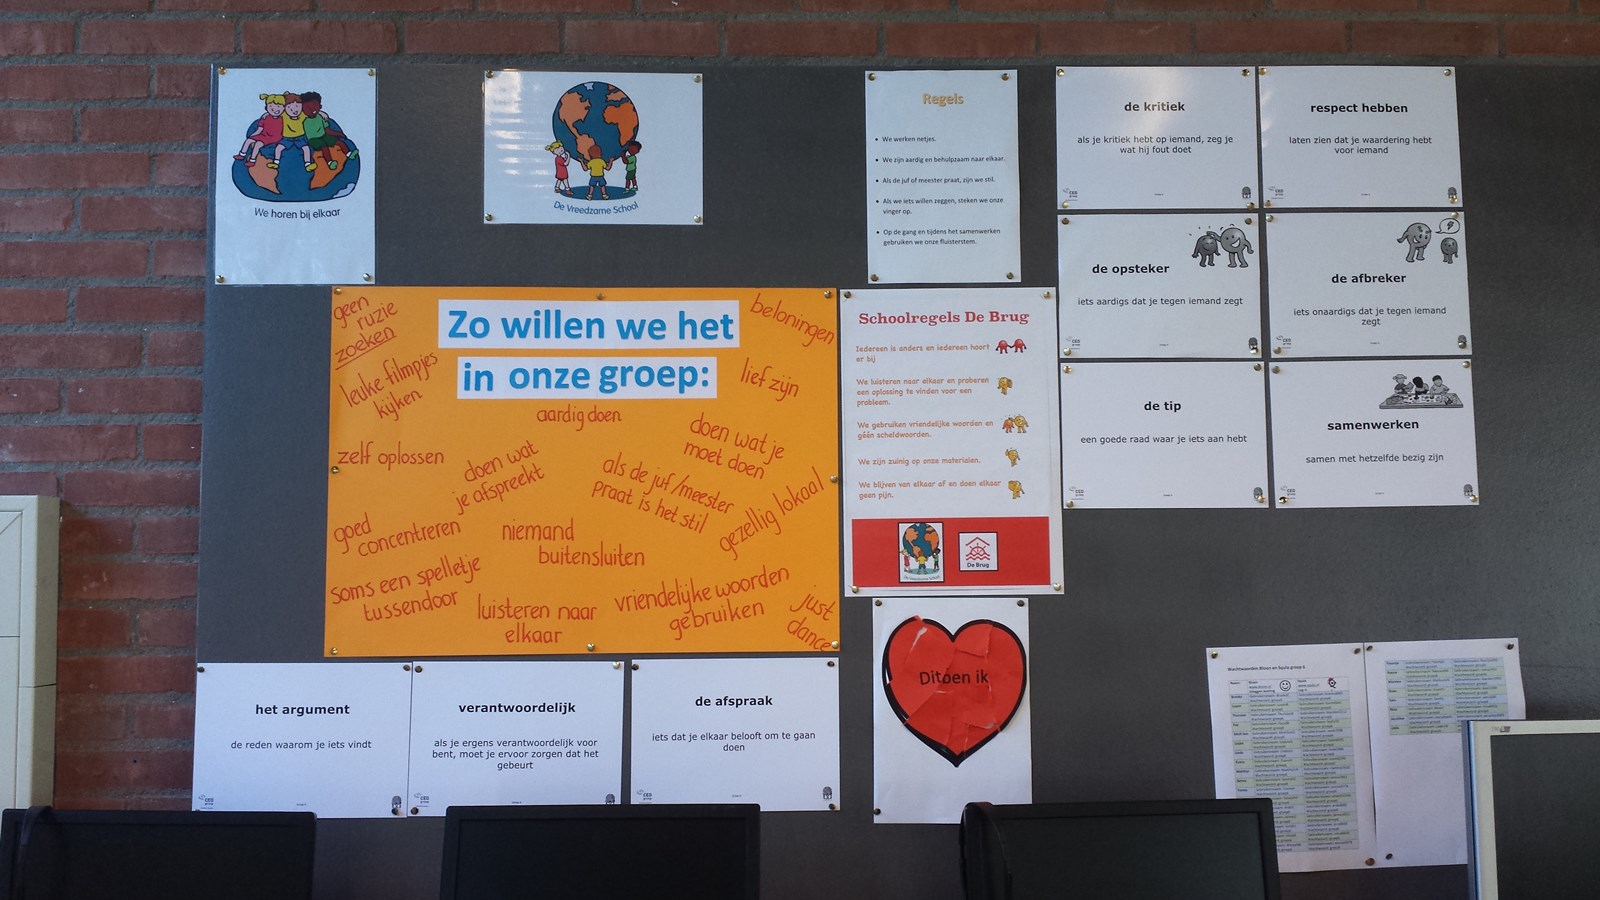 We horen bij elkaar
De Vreedzame School
Regels
• We werken netjes.
• We zijn aardig en behulpzaam naar elkaar.
• Als de juf of meester praat, zijn we stil.
• Als we iets willen zeggen, steken we onze
vinger op.
• Op de gang en tijdens het samenwerken
gebruiken we onze fluisterstem.
de kritiek
als je kritiek hebt op iemand, zeg je
wat hij fout doet
respect hebben
laten zien dat je waardering hebt
voor iemand
de opsteker
iets aardigs dat je tegen iemand zegt
de afbreker
iets onaardigs dat je tegen iemand
zegt
de tip
een goede raad waar je iets aan hebt
samenwerken
samen met hetzelfde bezig zijn
Zo willen we het
in onze groep:
geen
ruzie
zoeken
beloningen
leuke filmpjes
kijken
lief zijn
aardig doen
doen wat je
moet doen
zelf oplossen
doen wat
je afspreekt
als de juf/meester
praat is het stil
gezellig lokaal
goed
concentreren
niemand
buitensluiten
soms een spelletje
tussendoor
luisteren naar
elkaar
vriendelijke woorden
gebruiken
just
dance
Schoolregels De Brug
Iedereen is anders en iedereen hoort
er bij
We luisteren naar elkaar en proberen
een oplossing te vinden voor een
probleem.
We gebruiken vriendelijke woorden en
géén scheldwoorden.
We zijn zuinig op onze materialen.
We blijven van elkaar af en doen elkaar
geen pijn.
De Vreedzame School
De Brug
Dit doen ik
het argument
de reden waarom je iets vindt
verantwoordelijk
als je ergens verantwoordelijk voor
bent, moet je ervoor zorgen dat het
gebeurt
de afspraak
iets dat je elkaar belooft om te gaan
doen